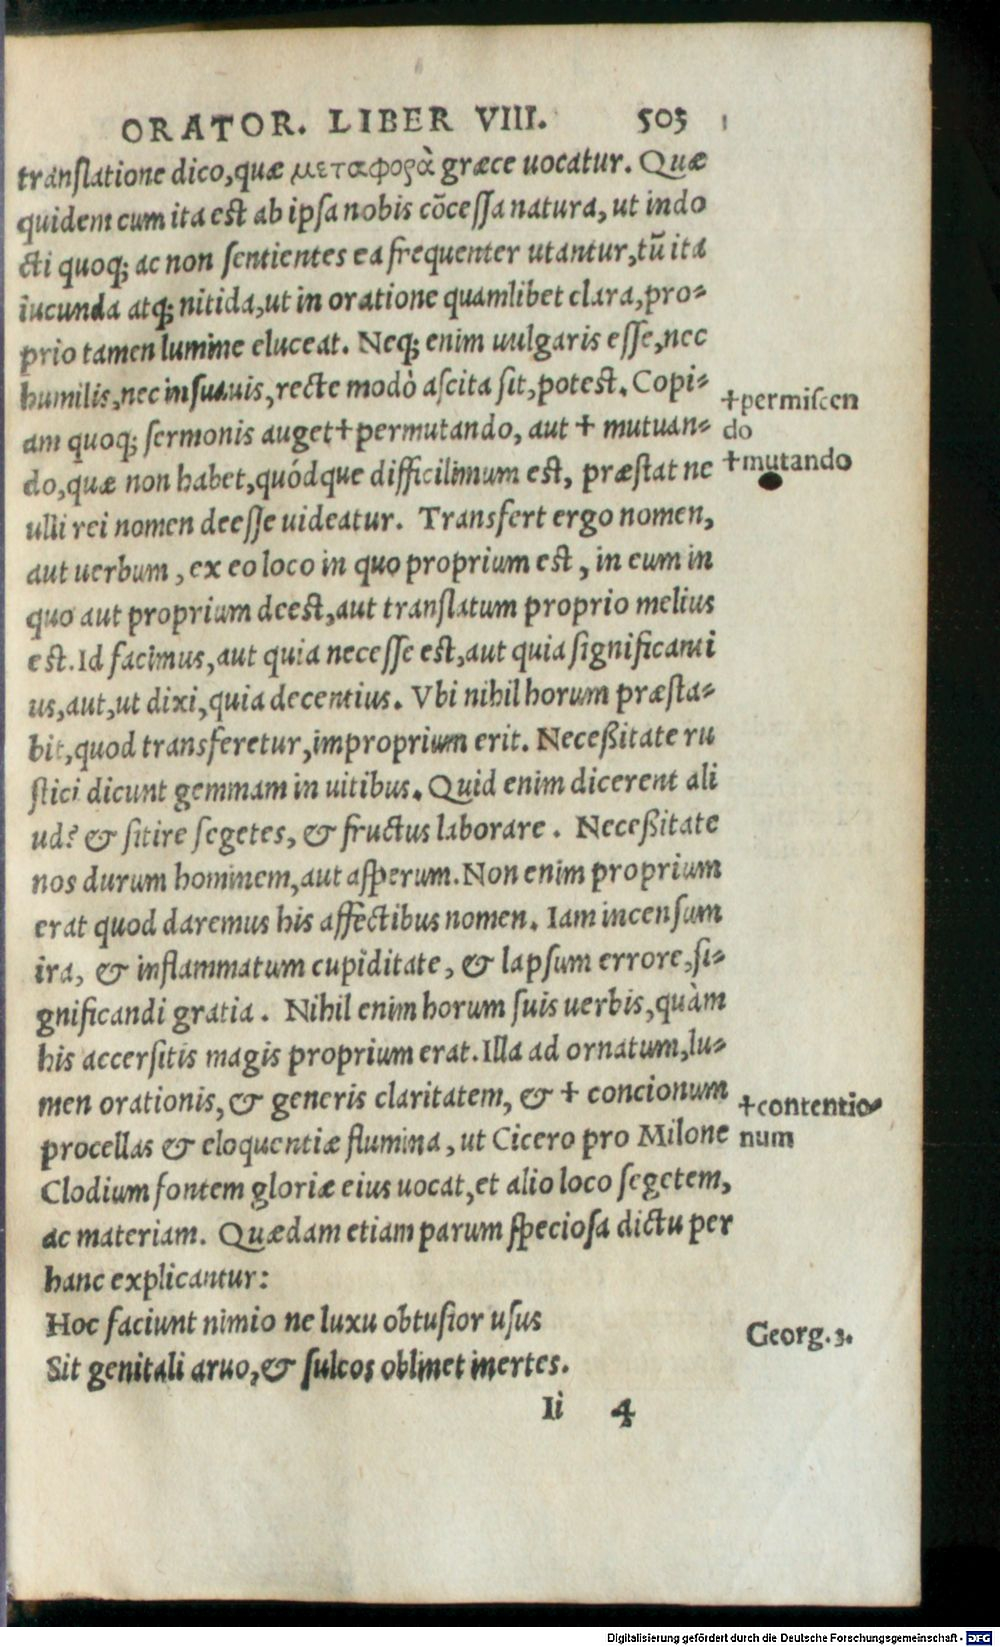 ORATOR. LIBER VIII. 503
translatione dico,quæ μεταφορὰ græce uocatur. Quæ
quidem cum ita est ab ipsa nobis cõcessa natura, ut indo
cti quoq; ac non sentientes ea frequenter utantur,tũ ita
iucunda atq; nitida,ut in oratione quamlibet clara,pro-
prio tamen lumine eluceat. Neq; enim uulgaris esse,nec
humilis,nec insuauis,recte modò ascita sit,potest. Copi-
am quoq; sermonis auget+permutando, aut + mutuan-
do,quæ non habet,quódque difficilimum est, præstat ne
ulli rei nomen deesse uideatur. Transfert ergo nomen,
aut uerbum , ex eo loco in quo proprium est , in eum in
quo aut proprium deest,aut translatum proprio melius
est. Id facimus,aut quia necesse est,aut quia significanti
us,aut,ut dixi,quia decentius. Vbi nihil horum præsta-
bit,quod transferetur,improprium erit. Neceßitate ru
stici dicunt gemmam in uitibus. Quid enim dicerent ali
ud? & sitire segetes, & fructus laborare . Neceßitate
nos durum hominem,aut asperum. Non enim proprium
erat quod daremus his affectibus nomen. Iam incensum
ira, & inflammatum cupiditate, & lapsum errore,si-
gnificandi gratia . Nihil enim horum suis uerbis,quàm
his accersitis magis proprium erat. Illa ad ornatum,lu-
men orationis,& generis claritatem, & + concionum
procellas & eloquentiæ flumina, ut Cicero pro Milone
Clodium fontem gloriæ eius uocat,et alio loco segetem,
ac materiam. Quædam etiam parum speciosa dictu per
hanc explicantur:
Hoc faciunt nimio ne luxu obtusior usus
Sit genitali aruo,& sulcos oblimet inertes.
Ii 4
+permiscen
do
+mutando
+contentio-
num
Georg.3.
Digitalisierung gefördert durch die Deutsche Forschungsgemeinschaft - DFG